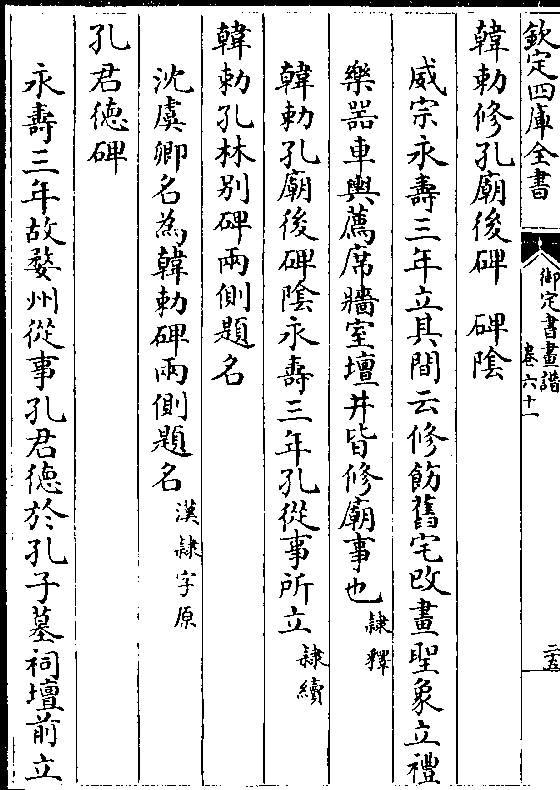 欽定四庫全書
御定書畫譜
卷六十一
二五
韓勅修孔廟後碑 碑陰
威宗永壽三年立其間云修飭舊宅改畫聖象立禮
樂器車輿薦席牆室壇井皆修廟事也隸釋
韓勅孔廟後碑陰永壽三年孔從事所立隸續
韓勅孔林别碑兩側題名
沈虞卿名為韓勅碑兩側題名漢隸字原
孔君德碑
永壽三年故婺州從事孔君德於孔子墓祠壇前立